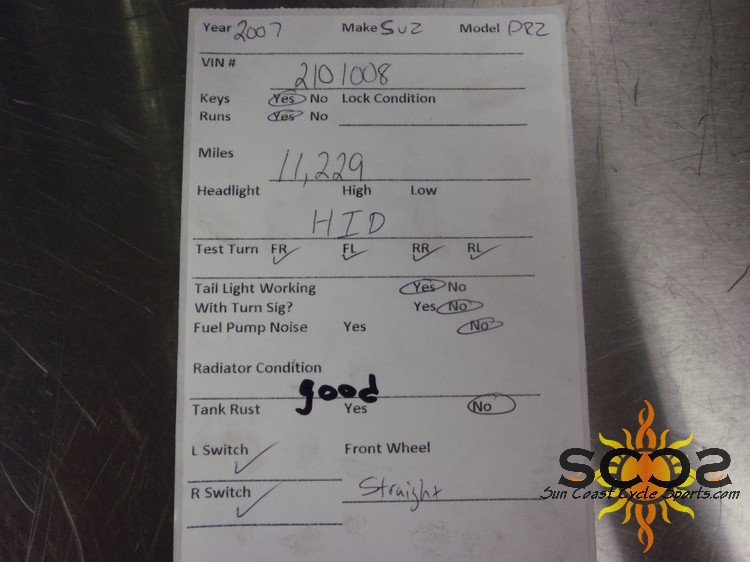 Year 2007 Make Suz Model DRZ
VIN # 2101008
Keys Yes No Lock Condition
Runs Yes No
Miles 11,229
Headlight High Low
HID
Test Turn FR FL RR RL
Tail Light Working Yes No
With Turn Sig? Yes No
Fuel Pump Noise Yes No
Radiator Condition
good
Tank Rust Yes No
L Switch Front Wheel
R Switch Straight
SCCS
Sun Coast Cycle Sports.com